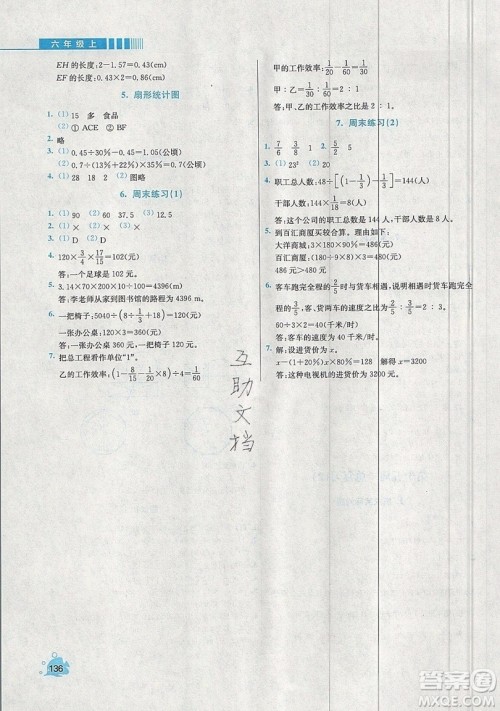 六年级上
EH的长度：2－1.57＝0.43(cm)
EF的长度：0.43×2＝0.86(cm)
5. 扇形统计图
1. (1) 15 多 食品
(2) ① ACE ② BF
2. 略
3. (1) 0.45÷30%＝1.5(公顷)
(2) 0.7÷(13%+22%)×30%＝0.6(公顷)
4. (1) 28 18 2 (2) 图略
6. 周末练习(1)
1. (1) 90 (2) 60 37.5 (3) 12.5
2. (1) × (2) ×
3. (1) D (2) D
4. 120×3/4×17/15＝102(元)
答：一个足球是102元。
5. 3.14×70×2×10÷100＝4396(m)
答：李老师从家到图书馆的路程是4396 m。
6. 一把椅子：5040÷(8÷1/3+18)＝120(元)
一张办公桌：120÷1/3＝360(元)
答：一张办公桌360元，一把椅子120元。
7. 把总工程看作单位"1"。
乙的工作效率：(1－8/15－1/20×8)÷4＝1/60
甲的工作效率：1/20－1/60＝1/30
甲：乙＝1/30：1/60＝2：1
答：甲、乙的工作效率之比是2：1。
7. 周末练习(2)
1. (1) 23² (2) 20
4. 职工总数：48÷[(1－1/4)－1/3]＝144(人)
答：这个公司的职工总数是144人，
5. 到百汇商厦买较合算。理由：
大洋商城：3×180×90%＝486(元)
百汇商厦：(180－9×2)×3＝486(元)
486元＞480元
6. 客车跑完全程的2/3时与货车相遇，说明相遇时货车跑完全程的
60÷3×2＝40(千米/时)
答：货车的速度为40千米/时。
7. 解：设进货价为x元。
答：这种电视机的进货价为1200元。
互助文档
136
答案圈
MXQE.COM